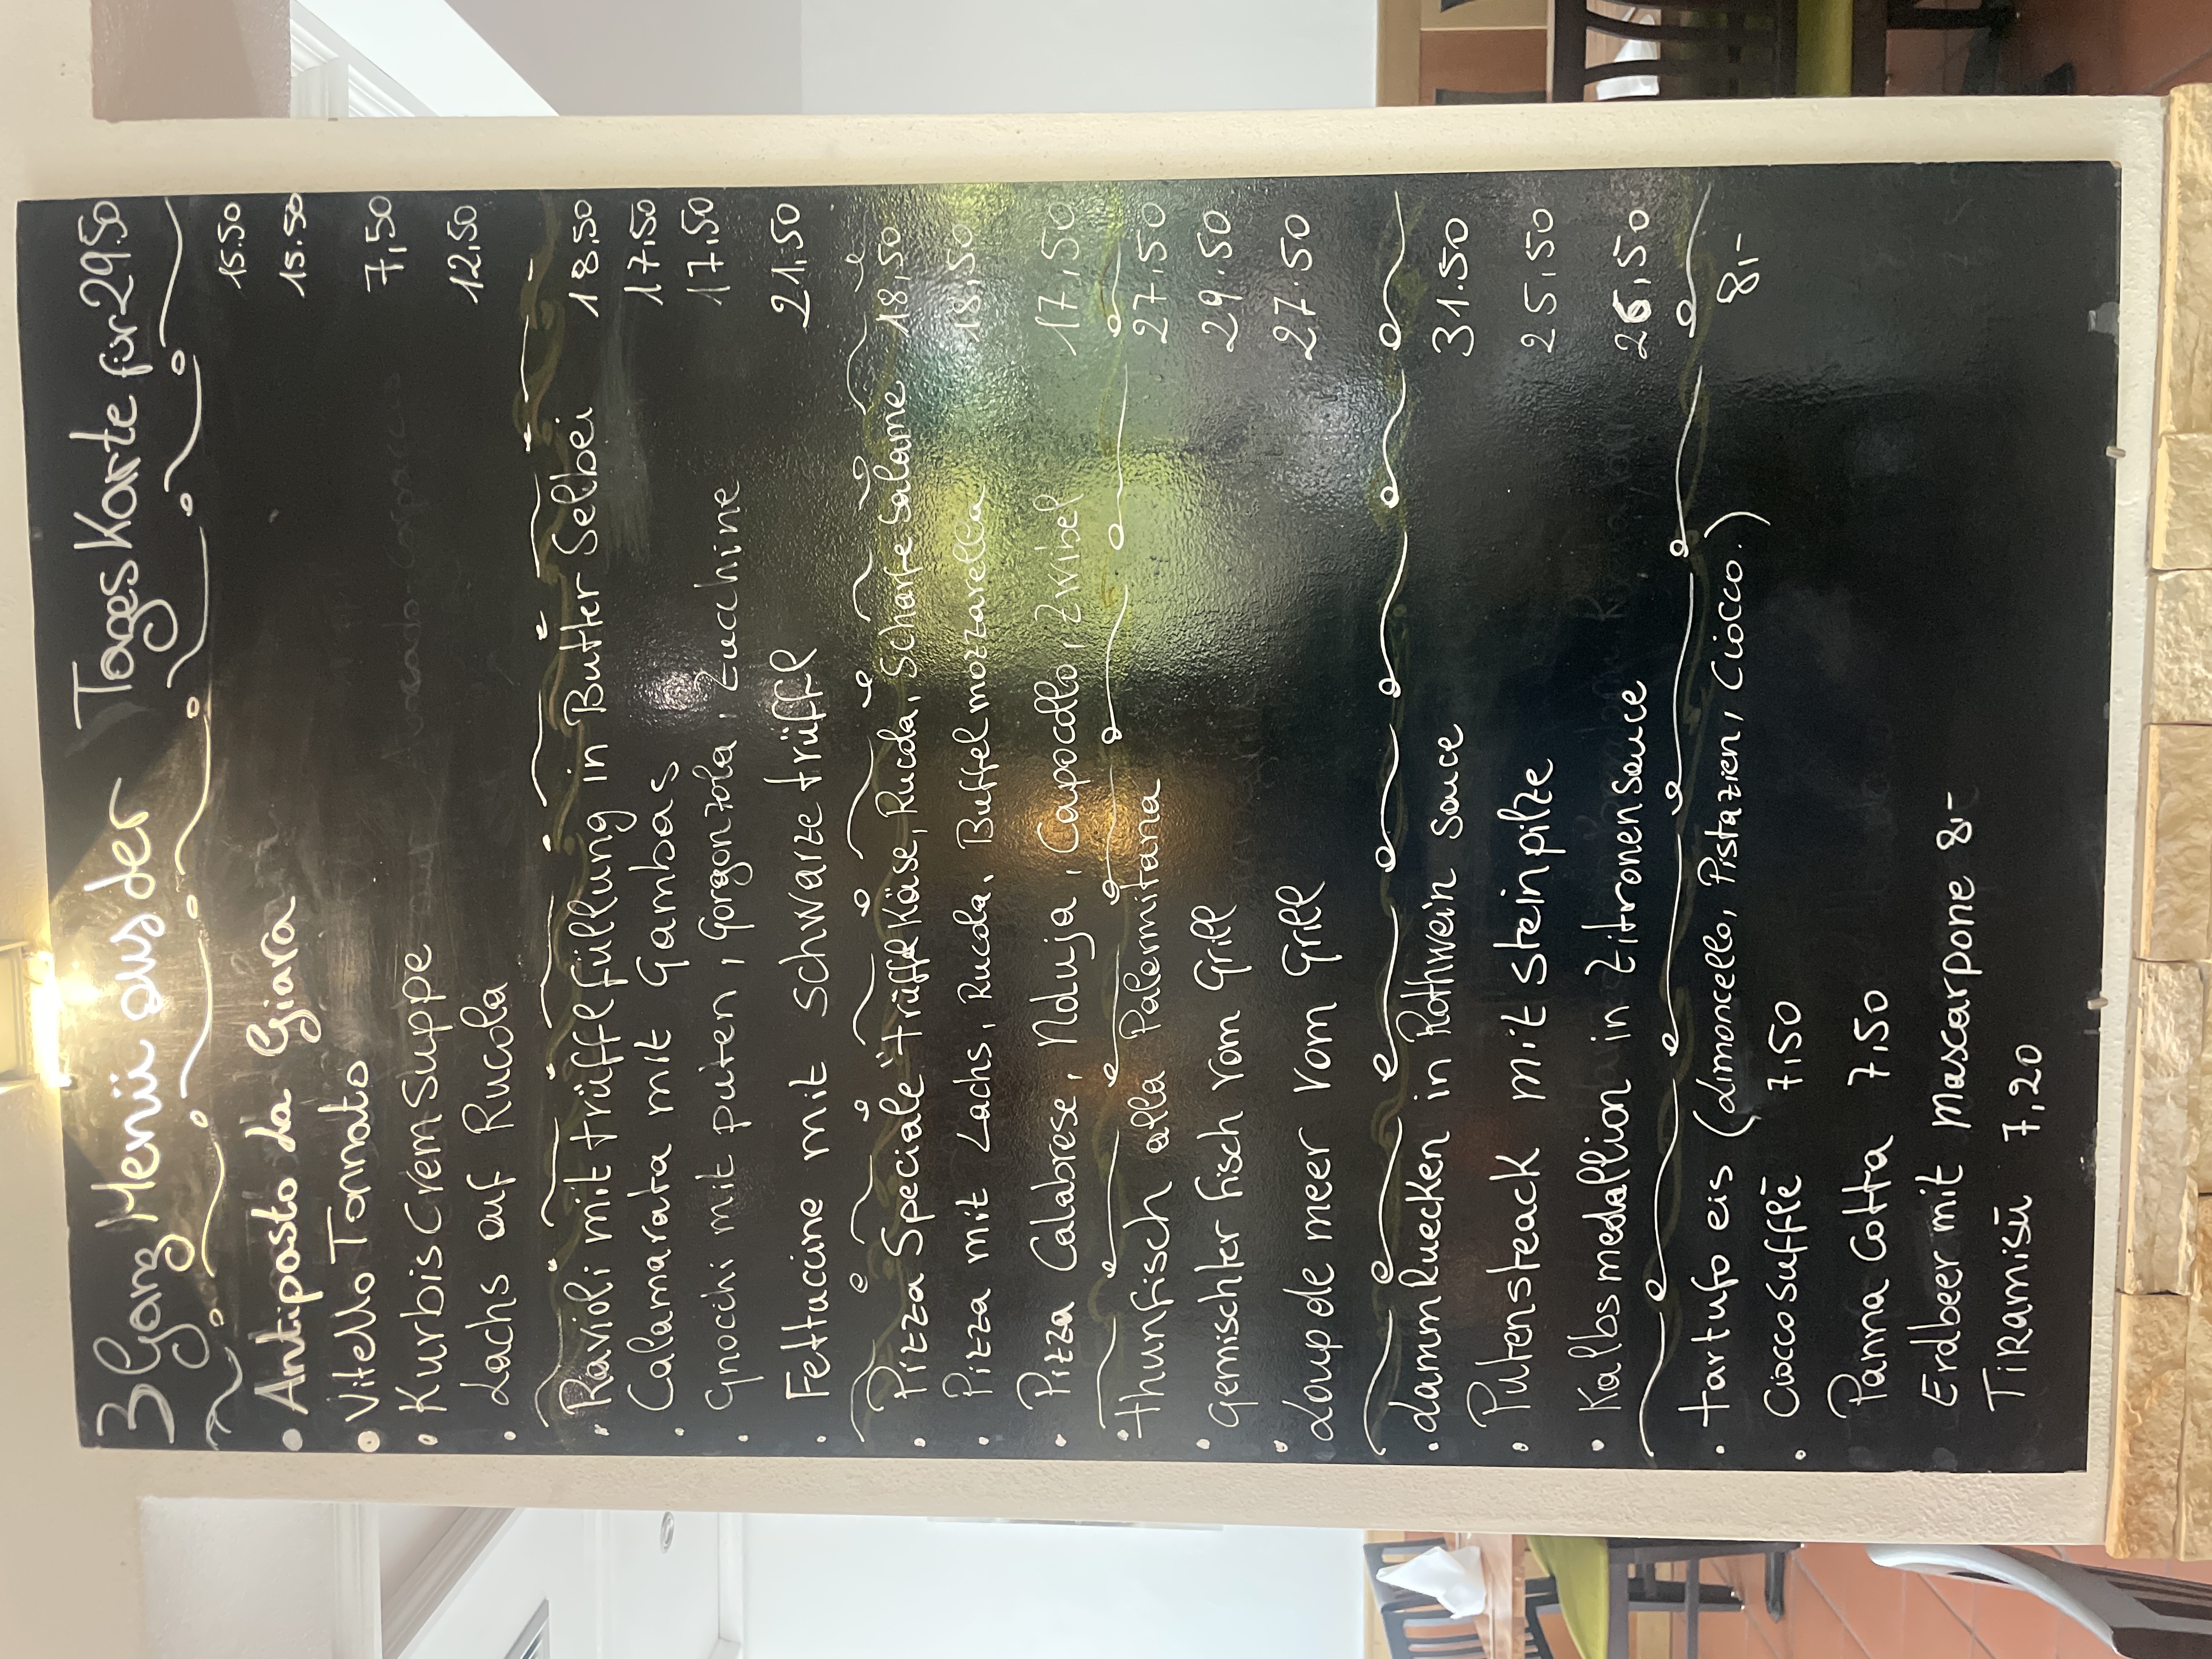 3 Gang Menü aus der Tageskarte für 29.50
• Antipasto da Giara 15.50
• Vitello Tonnato 15.50
• Kurbis Crem Suppe 7,50
• Lachs auf Rucola 12,50
• Ravioli mit trüffelfüllung in Butter Selbei 18,50
• Calamarata mit Gambas 17,50
• Gnocchi mit puten, Gorgonzola, Zucchine 17,50
• Fettuccine mit schwarze trüffel 21,50
• Pizza Speciale "trüffel Käse, Rucola, Scharfe Salame 18,50
• Pizza mit Lachs, Rucola, Buffelmozzarella 18,50
• Pizza Calabrese, Nduja, Capocollo, Zwibel 17,50
• thunfisch alla Palermitana 27,50
• Gemischter fisch vom Grill 29.50
• Loup de meer vom Grill 27.50
• Lammruecken in Rothwein sauce 31.50
• Putensteack mit steinpilze 25,50
• Kalbs medallion in zitronensauce 26,50
• tartufo eis (Limoncello, Pistazien, Ciocco.) 8,-
• Ciocco Sufflè 7,50
Panna Cotta 7,50
Erdbeer mit mascarpone 8,-
Tiramisù 7,20